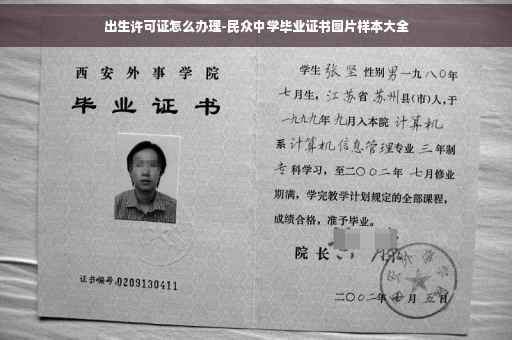 出生许可证怎么办理-民众中学毕业证书图片样本大全
西安外事学院
毕业证书
证书编号:0209130411
学生 张坚 性别男一九八〇年
七月生,江苏省苏州县(市)人,于
一九九九年九月入本院 计算机
系 计算机信息管理专业 三 年制
专 科学习,至二〇〇二年 七月修业
期满,学完教学计划规定的全部课程,
成绩合格,准予毕业。
院长
二〇〇二年 月 五日